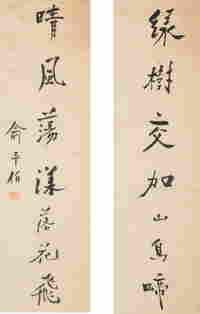 綠樹交加山鳥啼
晴風蕩漾落花飛
俞平伯